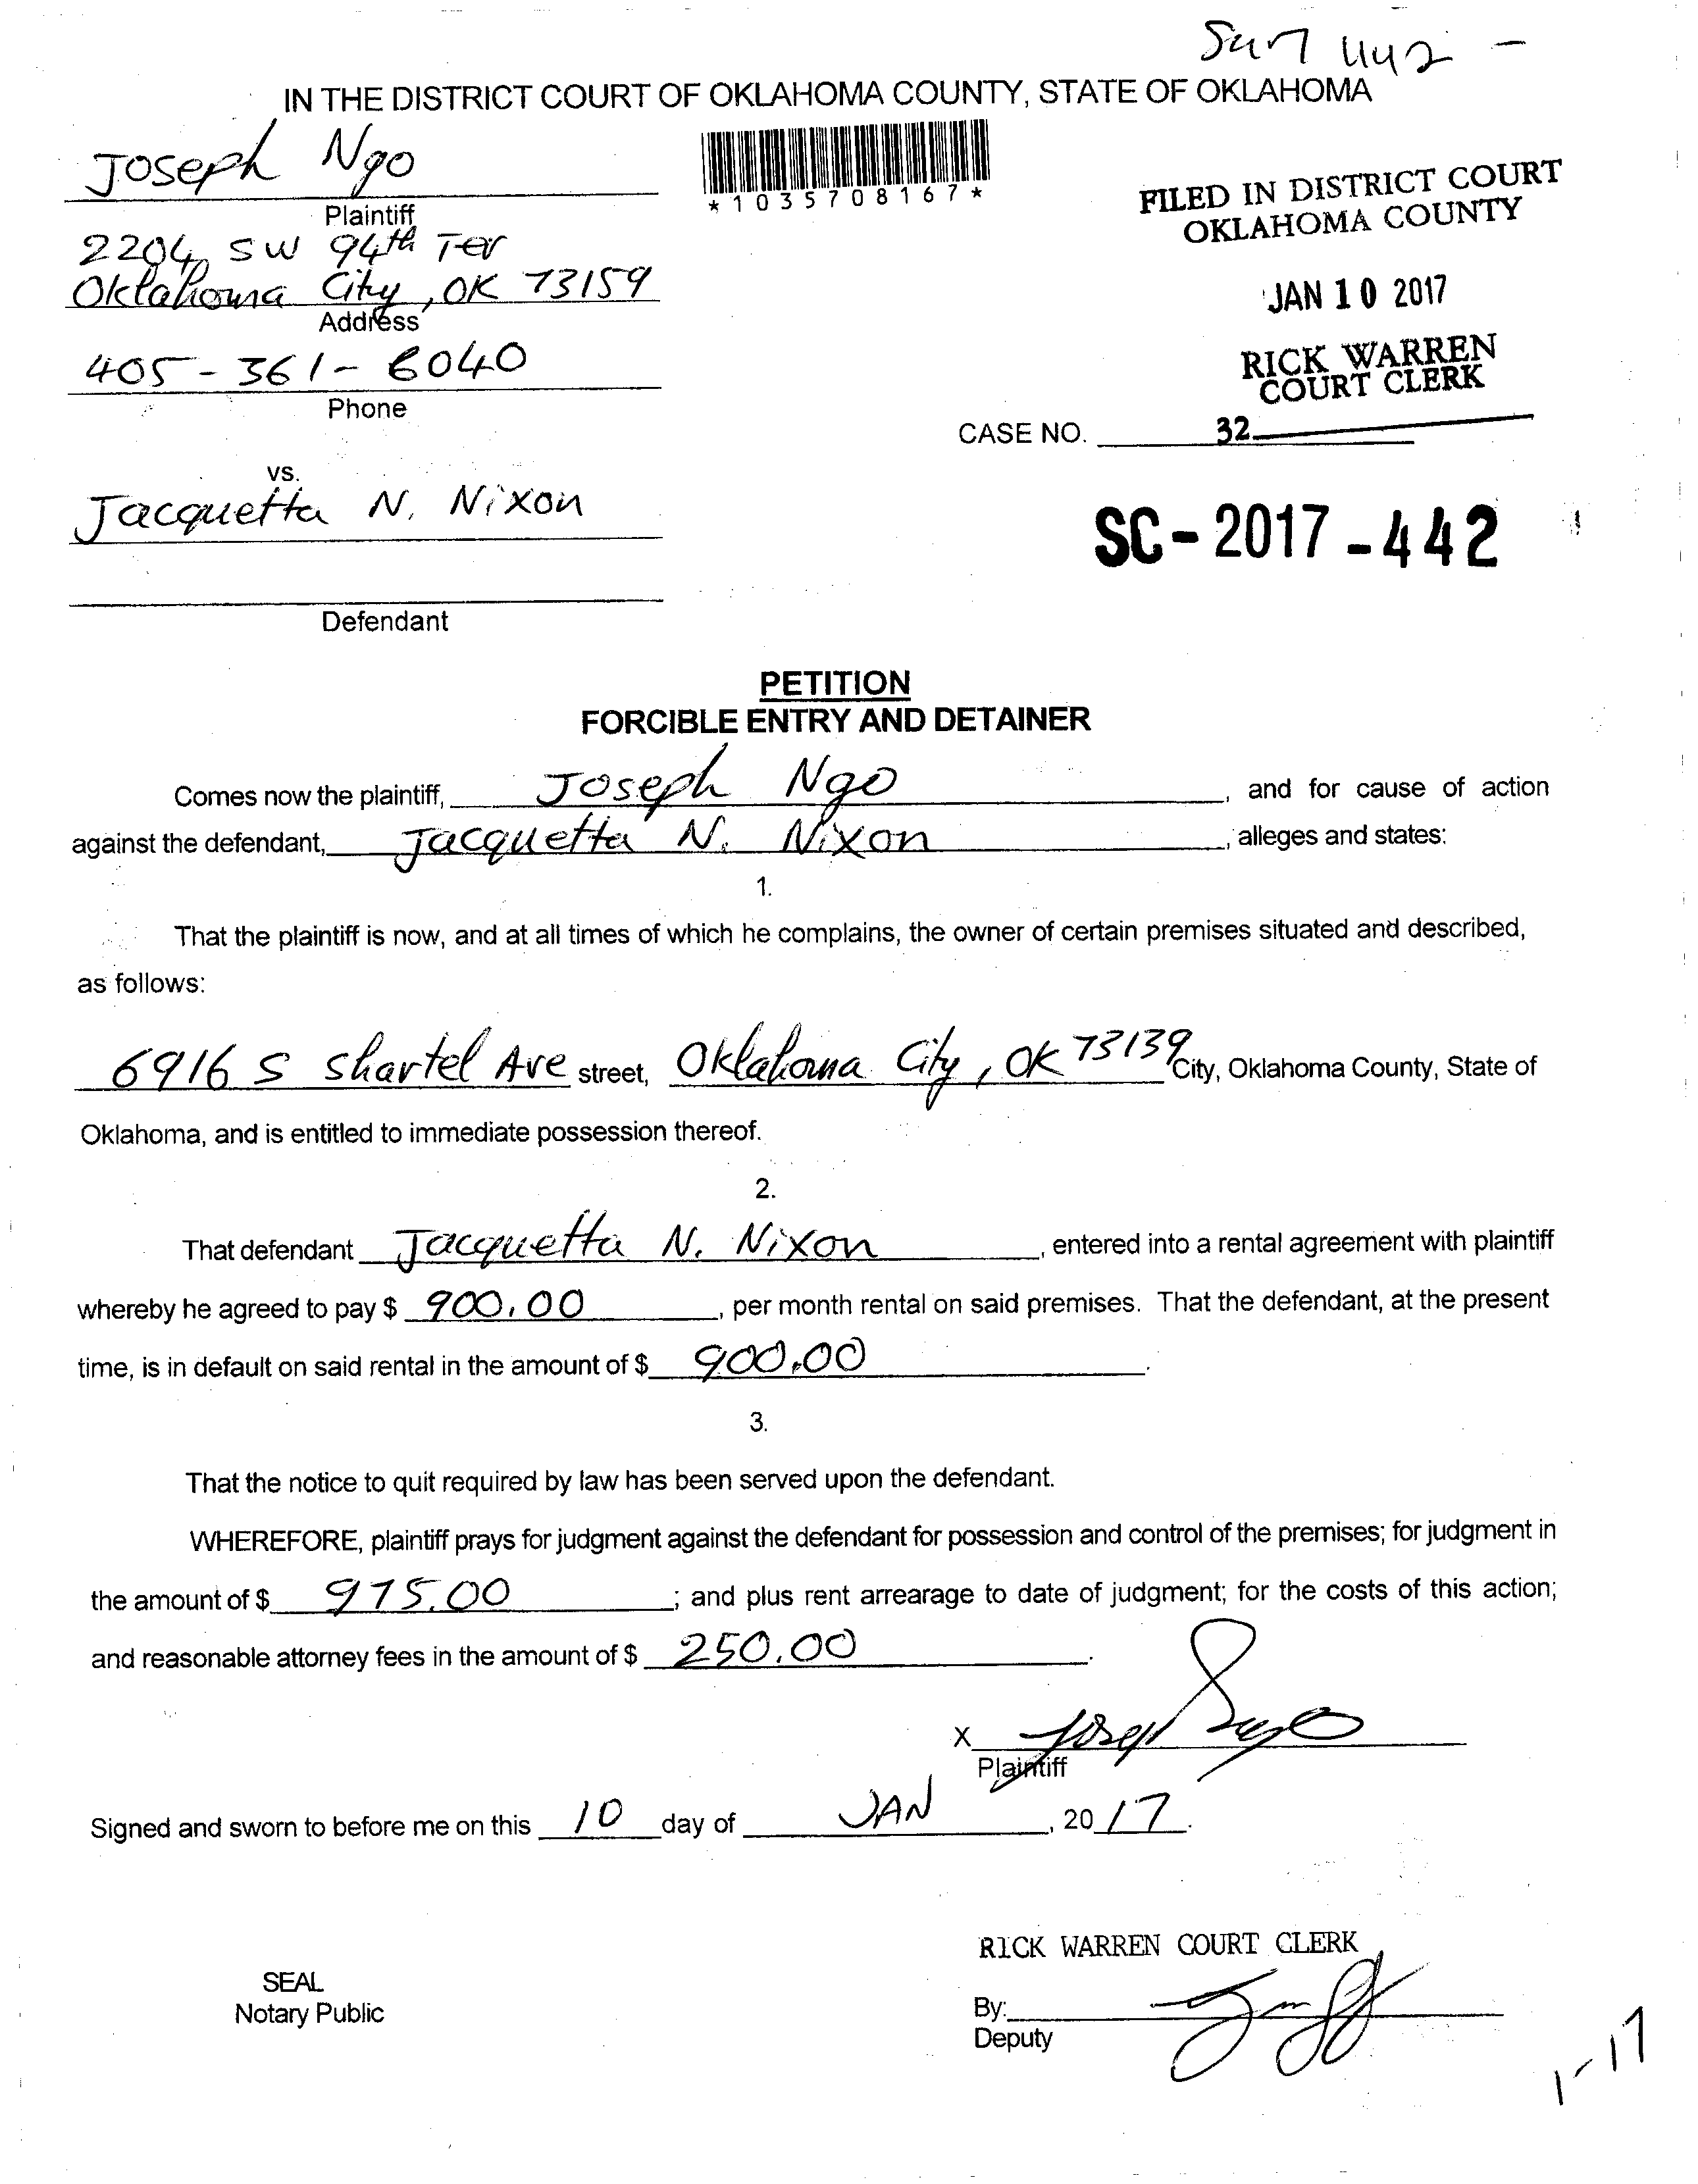 442 -
IN THE DISTRICT COURT OF OKLAHOMA COUNTY, STATE OF OKLAHOMA
Joseph Ngo
Plaintiff
*1035708167*
FILED IN DISTRICT COURT
OKLAHOMA COUNTY
JAN 10 2017
RICK WARREN
COURT CLERK
2204 SW 94th Ter
Oklahoma City, OK 73159
Address
405-361-6040
Phone
CASE NO. 32
vs.
Jacquetta N. Nixon
SC-2017-442
Defendant
PETITION
FORCIBLE ENTRY AND DETAINER
Comes now the plaintiff, Joseph Ngo, and for cause of action
against the defendant, Jacquetta N. Nixon, alleges and states:
1.
That the plaintiff is now, and at all times of which he complains, the owner of certain premises situated and described,
as follows:
6916 S Shartel Ave street, Oklahoma City, OK 73139 City, Oklahoma County, State of
Oklahoma, and is entitled to immediate possession thereof.
2.
That defendant Jacquetta N. Nixon, entered into a rental agreement with plaintiff
whereby he agreed to pay $ 900.00, per month rental on said premises. That the defendant, at the present
time, is in default on said rental in the amount of $ 900.00.
3.
That the notice to quit required by law has been served upon the defendant.
WHEREFORE, plaintiff prays for judgment against the defendant for possession and control of the premises; for judgment in
the amount of $ 975.00; and plus rent arrearage to date of judgment; for the costs of this action;
and reasonable attorney fees in the amount of $ 250.00.
X Joseph Ngo
Plaintiff
Signed and sworn to before me on this 10 day of JAN, 2017.
RICK WARREN COURT CLERK
SEAL
Notary Public
By:
Deputy
1-17